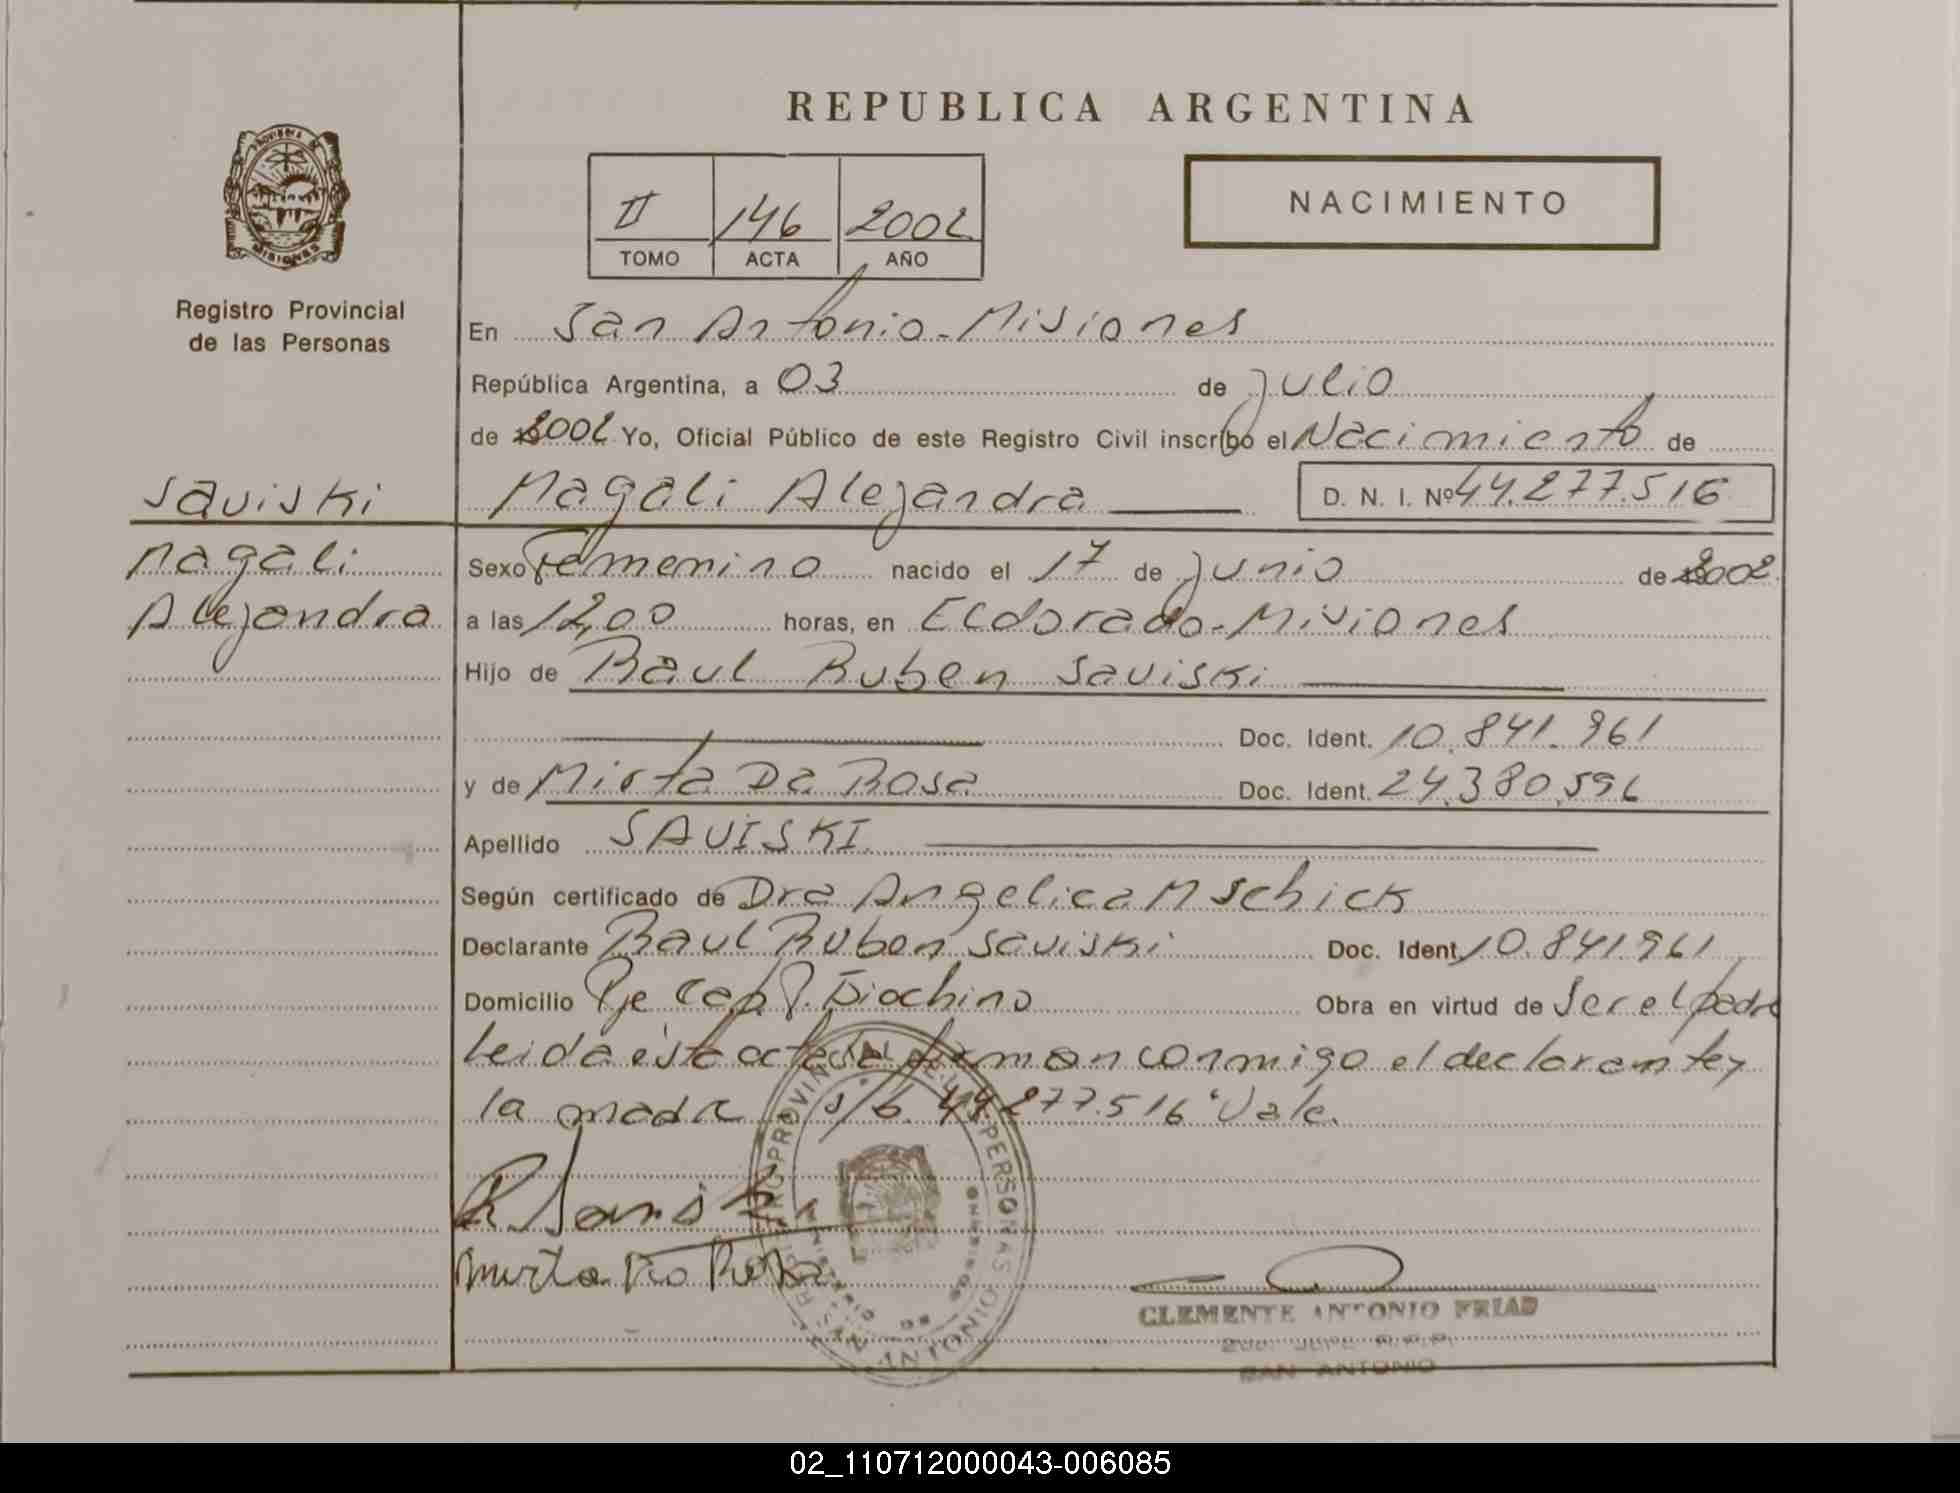 REPUBLICA ARGENTINA
PROVINCIA DE MISIONES
Registro Provincial
de las Personas
II 146 2002
TOMO ACTA AÑO
NACIMIENTO
En San Antonio - Misiones
República Argentina, a 03 de julio
de 2002 Yo, Oficial Público de este Registro Civil inscribo el Nacimiento de
Saviski
Magali Alejandra D. N. I. Nº 44.277.516
Magali
Alejandra
Sexo Femenino nacido el 17 de junio de 2002
a las 12,00 horas, en Eldorado - Misiones
Hijo de Raul Ruben Saviski
Doc. Ident. 10.841.961
y de Mirta Da Rosa Doc. Ident. 24.380.596
Apellido SAVISKI
Según certificado de Dra Angelica M Schick
Declarante Raul Ruben Saviski Doc. Ident. 10.841.961
Domicilio Pje Cab P. Giachino Obra en virtud de Ser el padre
Leida esta acta la firman conmigo el declarante y
la madre s/b. 44 277.516 "Vale.
R Saviski
Mirta Da Rosa
REGISTRO PROVINCIAL DE LAS PERSONAS
MINISTERIO DE GOBIERNO
SAN ANTONIO
CLEMENTE ANTONIO FRIAS
2do. JEFE R.P.P.
SAN ANTONIO
02_110712000043-006085